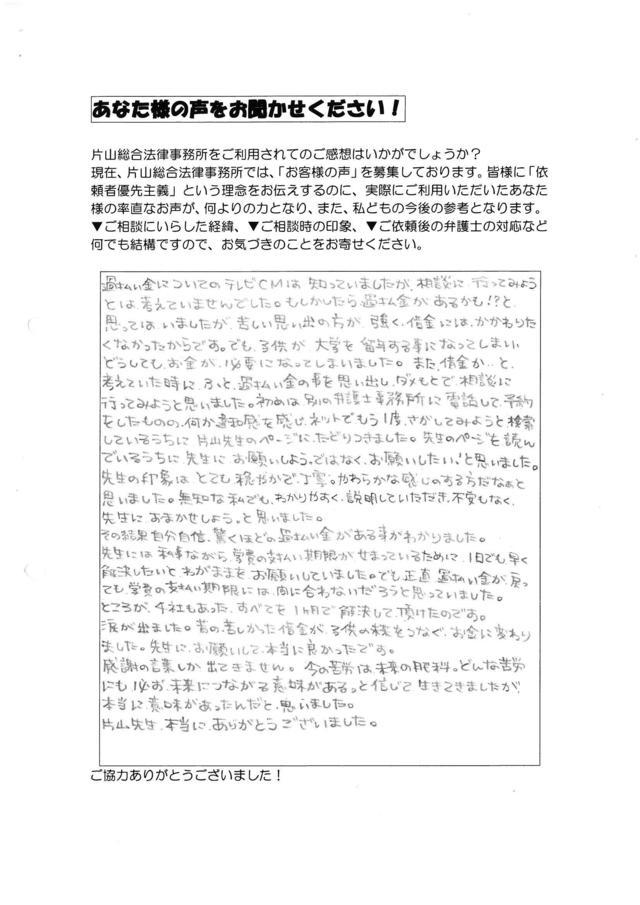 あなた様の声をお聞かせください！
片山総合法律事務所をご利用されてのご感想はいかがでしょうか？
現在、片山総合法律事務所では、「お客様の声」を募集しております。皆様に「依
頼者優先主義」という理念をお伝えするのに、実際にご利用いただいたあなた
様の率直なお声が、何よりの力となり、また、私どもの今後の参考となります。
▼ご相談にいらした経緯、▼ご相談時の印象、▼ご依頼後の弁護士の対応など
何でも結構ですので、お気づきのことをお寄せください。
過払い金についてのテレビCMは知っていましたが、相談に行ってみよう
とは考えていませんでした。もしかしたら過払金があるかも!?と、
思ってはいましたが、苦しい思い出の方が強く、借金には、かかわりた
くなかったからです。でも、子供が大学を留年する事になってしまい
どうしてもお金が必要になってしまいました。また、借金か‥と、
考えていた時に、ふと、過払い金の事を思い出し、ダメもとで、相談に
行ってみようと思いました。初めは別の弁護士事務所に電話して、予約
をしたものの、何か違和感を感じ、ネットでもう1度、さがしてみようと検索
しているうちに片山先生のページに、たどりつきました。先生のページを読ん
でいるうちに先生にお願いしよう。ではなく、お願いしたい!と思いました。
先生の印象はとても穏やかで、丁寧。やわらかな感じのする方だなぁと
思いました。無知な私でも、わかりやすく、説明していただき、不安もなく、
先生におまかせしよう。と思いました。
その結果自分自信、驚くほどの過払い金がある事がわかりました。
先生には私事ながら、学費の支払い期限がせまっているために、1日でも早く
解決したいと、わがままをお願いしていました。でも、正直過払い金が、戻っ
ても、学費の支払期限には、間に合わないだろうと思っていました。
ところが、4社もあった、すべてを1ヶ月で解決して頂けたのです。
涙が出ました。昔の苦しかった借金が、子供の未来をつなぐ、お金に変わり
ました。先生に、お願いして、本当に良かったです。
感謝の言葉しか出てきません。今の苦労は未来の肥料。どんな苦労
にも必ず、未来につながる意味がある。と信じて生きてきましたが
本当に、意味があったんだと、思いました。
片山先生、本当に、ありがとうございました。
ご協力ありがとうございました！